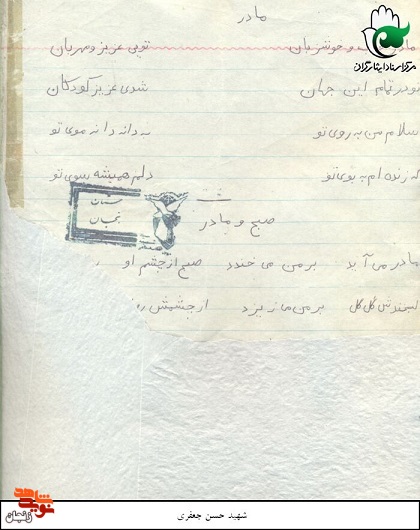 مادر
مرکز اسناد ایثارگران
مادر و خوش زبان تویی عزیز و مهربان
تو در تمام این جهان شدی عزیز کودکان
سلام من به روی تو به دانه دانه موی تو
که زنده ام به بوی تو دلم همیشه سوی تو
صبح و مادر
مادر می آید بر من می خندد صبح از چشم او
لبخندش گل گل بر من می از چشمش
نوید شاهد
زنجان
شهید حسن جعفری